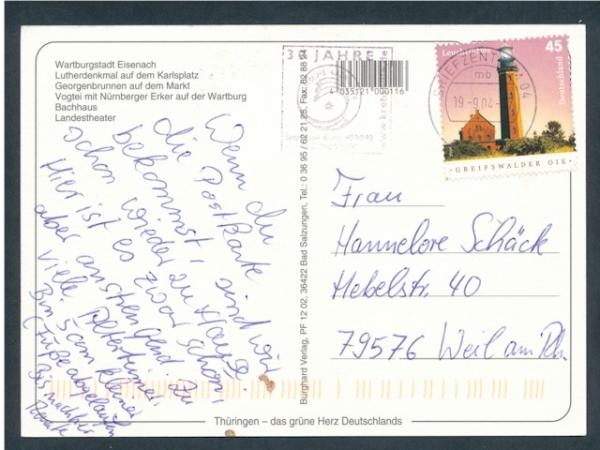 Wartburgstadt Eisenach
Lutherdenkmal auf dem Karlsplatz
Georgenbrunnen auf dem Markt
Vogtei mit Nürnberger Erker auf der Wartburg
Bachhaus
Landestheater
Wenn du
die Postkarte
bekommst, sind wir
schon wieder zu Hause.
Hier ist es zwar schön
aber anstrengend
viele
Bin 5 cm kleiner
(Füße abgelaufen
Bis nächste
Burghard Verlag, PF 12 02, 36422 Bad Salzungen, Tel.: 0 36 95 / 62 21 25, Fax: 62 88 94
JAHRE
4 035121 000116
BRIEFZENTRUM 04
mb
19.-9.04
Leuchttürme
45
Deutschland
GREIFSWALDER OIE
Frau
Hannelore Schäck
Hebelstr. 40
79576 Weil am Rh.
Thüringen – das grüne Herz Deutschlands